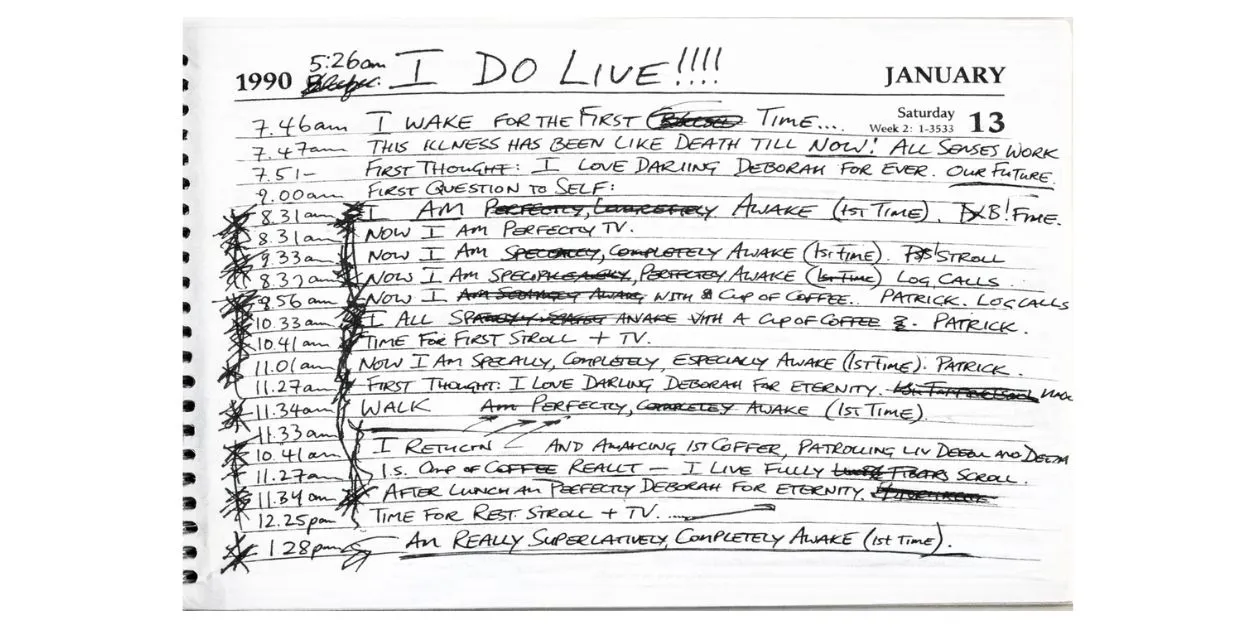 1990 5:26am I DO LIVE!!!! JANUARY
Saturday 13
Week 2: 1-3533
7.46am I WAKE FOR THE FIRST TIME...
7.47am THIS ILLNESS HAS BEEN LIKE DEATH TILL NOW! ALL SENSES WORK
7.51- FIRST THOUGHT: I LOVE DARLING DEBORAH FOR EVER. OUR FUTURE.
9.00am FIRST QUESTION TO SELF:
8.31am I AM PERFECTLY, COMPLETELY AWAKE (1ST TIME).
8.31am NOW I AM PERFECTLY TV.
9.33am NOW I AM COMPLETELY AWAKE (1ST TIME). STROLL
NOW I AM PERFECTLY AWAKE (1ST TIME) LOG CALLS
NOW I AM AWAKE WITH CUP OF COFFEE.. PATRICK. LOG CALLS
10.33am I ALL AWAKE WITH A CUP OF COFFEE PATRICK.
10.41am TIME FOR FIRST STROLL + TV.
11.01am NOW I AM SPECALLY, COMPLETELY, ESPECIALLY AWAKE (1ST TIME). PATRICK.
11.27am FIRST THOUGHT: I LOVE DARLING DEBORAH FOR ETERNITY.
11.34am WALK AM PERFECTLY, AWAKE (1ST TIME).
11.33am
10.41am I AND 1ST COFFER, PATROLLING LIV AND
11.27am 1.S. CUP OF COFFEE REALLT – I LIVE FULLY SCROLL.
11.34am AFTER LUNCH AM PERFECTLY DEBORAH FOR ETERNITY.
12.25pm TIME FOR REST. STROLL + TV.
1 28pm AM REALLY SUPERLATIVELY, COMPLETELY AWAKE (1st TIME).